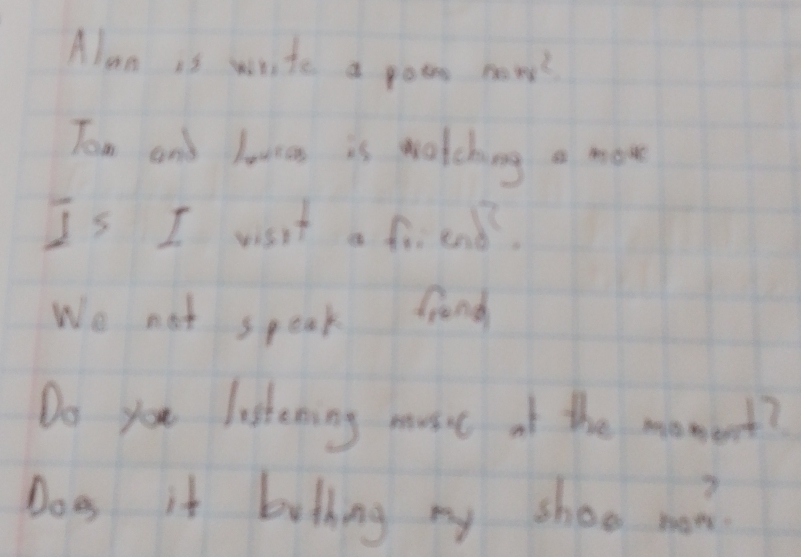 Alan is write a poem now?
Tom and Lucas is watching a move
Is I visit a friend?.
We not speak frend
Do you listening music at the moment?
Does it buthing my shoe now?.